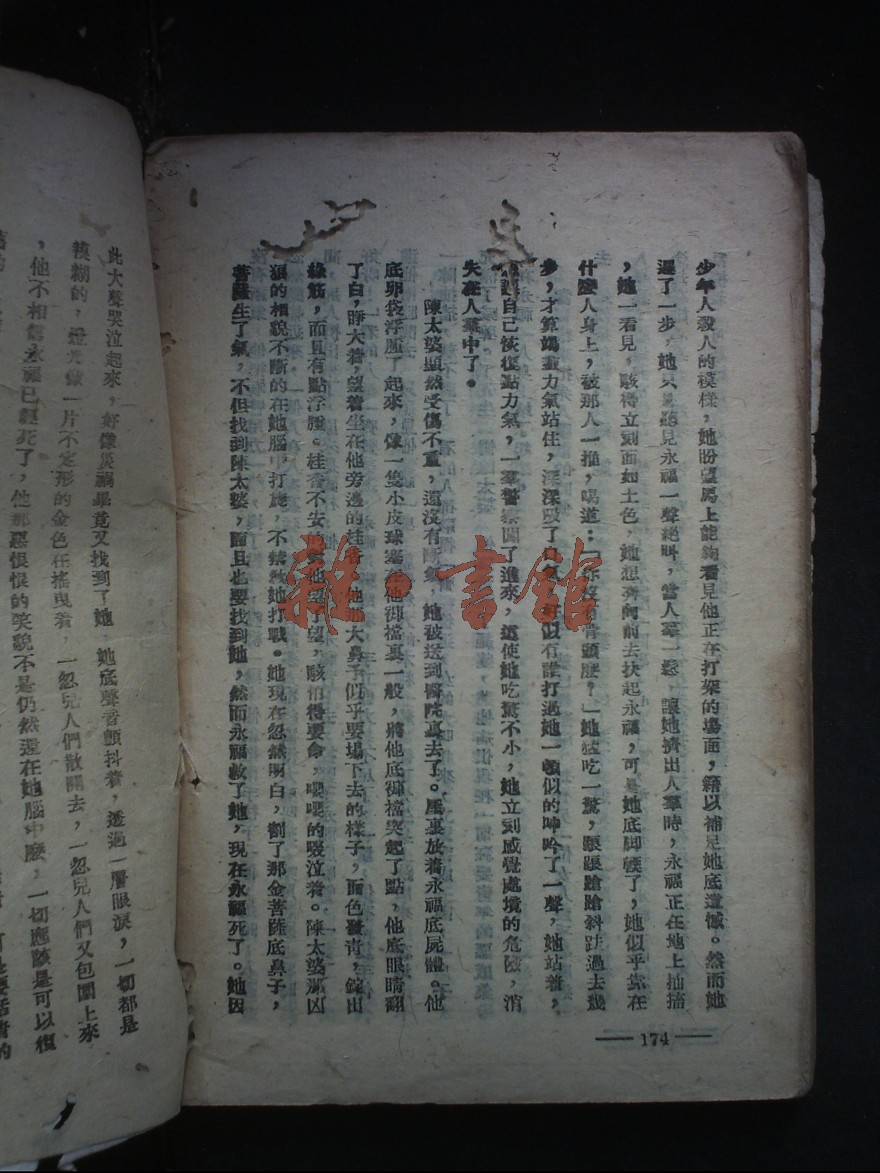 少年人殺人的模樣，她盼望馬上能夠看見他正在打架的場面，藉以補足她底遺憾。然而她
遲了一步，她只聽見永福一聲絕叫，當人羣一鬆，讓她擠出人羣時，永福正在地上抽搐
，她一看見，駭得立刻面如土色，她想奔向前去扶起永福，可是她底脚輭了，她似乎靠在
什麽人身上，被那人一推，喝道：「你沒有骨頭麽？」她猛吃一驚，踉踉蹌蹌斜跌過去幾
步，才算竭盡力氣站住，深深吸了口氣，好似有誰打過她一頓似的呻吟了一聲，她站着，
自己恢復點力氣，一羣警察闖了進來，這使她吃驚不小，她立刻感覺處境的危險，消
失在人羣中了。
陳太婆顯然受傷不重，還沒有斷氣，她被送到醫院裏去了。屋裏放着永福底屍體。他
底卵袋浮腫了起來，像一隻小皮球塞在他褲襠裏一般，將他底褲襠突起了點，他底眼睛翻
了白，睜大着，望着坐在他旁邊的桂香，他那大鼻子似乎要塌下去的樣子，面色發青，綻出
綠筋，而且有點浮腫。桂香不安的對他望了望，駭怕得要命，嚶嚶的啜泣着。陳太婆那凶
狠的相貌不斷的在她腦中打旋，不禁教她打戰。她現在忽然明白，割了那金菩薩底鼻子，
菩薩生了氣，不但找到陳太婆，而且也要找到她，然而永福救了她，現在永福死了。她因
— 174 —
此大聲哭泣起來，好像災禍畢竟又找到了她，她底聲音顫抖着，透過一層眼淚，一切都是
模糊的，燈光像一片不定形的金色在搖曳着，一忽兒人們散開去，一忽兒人們又包圍上來
，他不相信永福已經死了，他那惡狠狠的笑貌不是仍然還在她腦中麽，一切應該是可以復
雜·書館